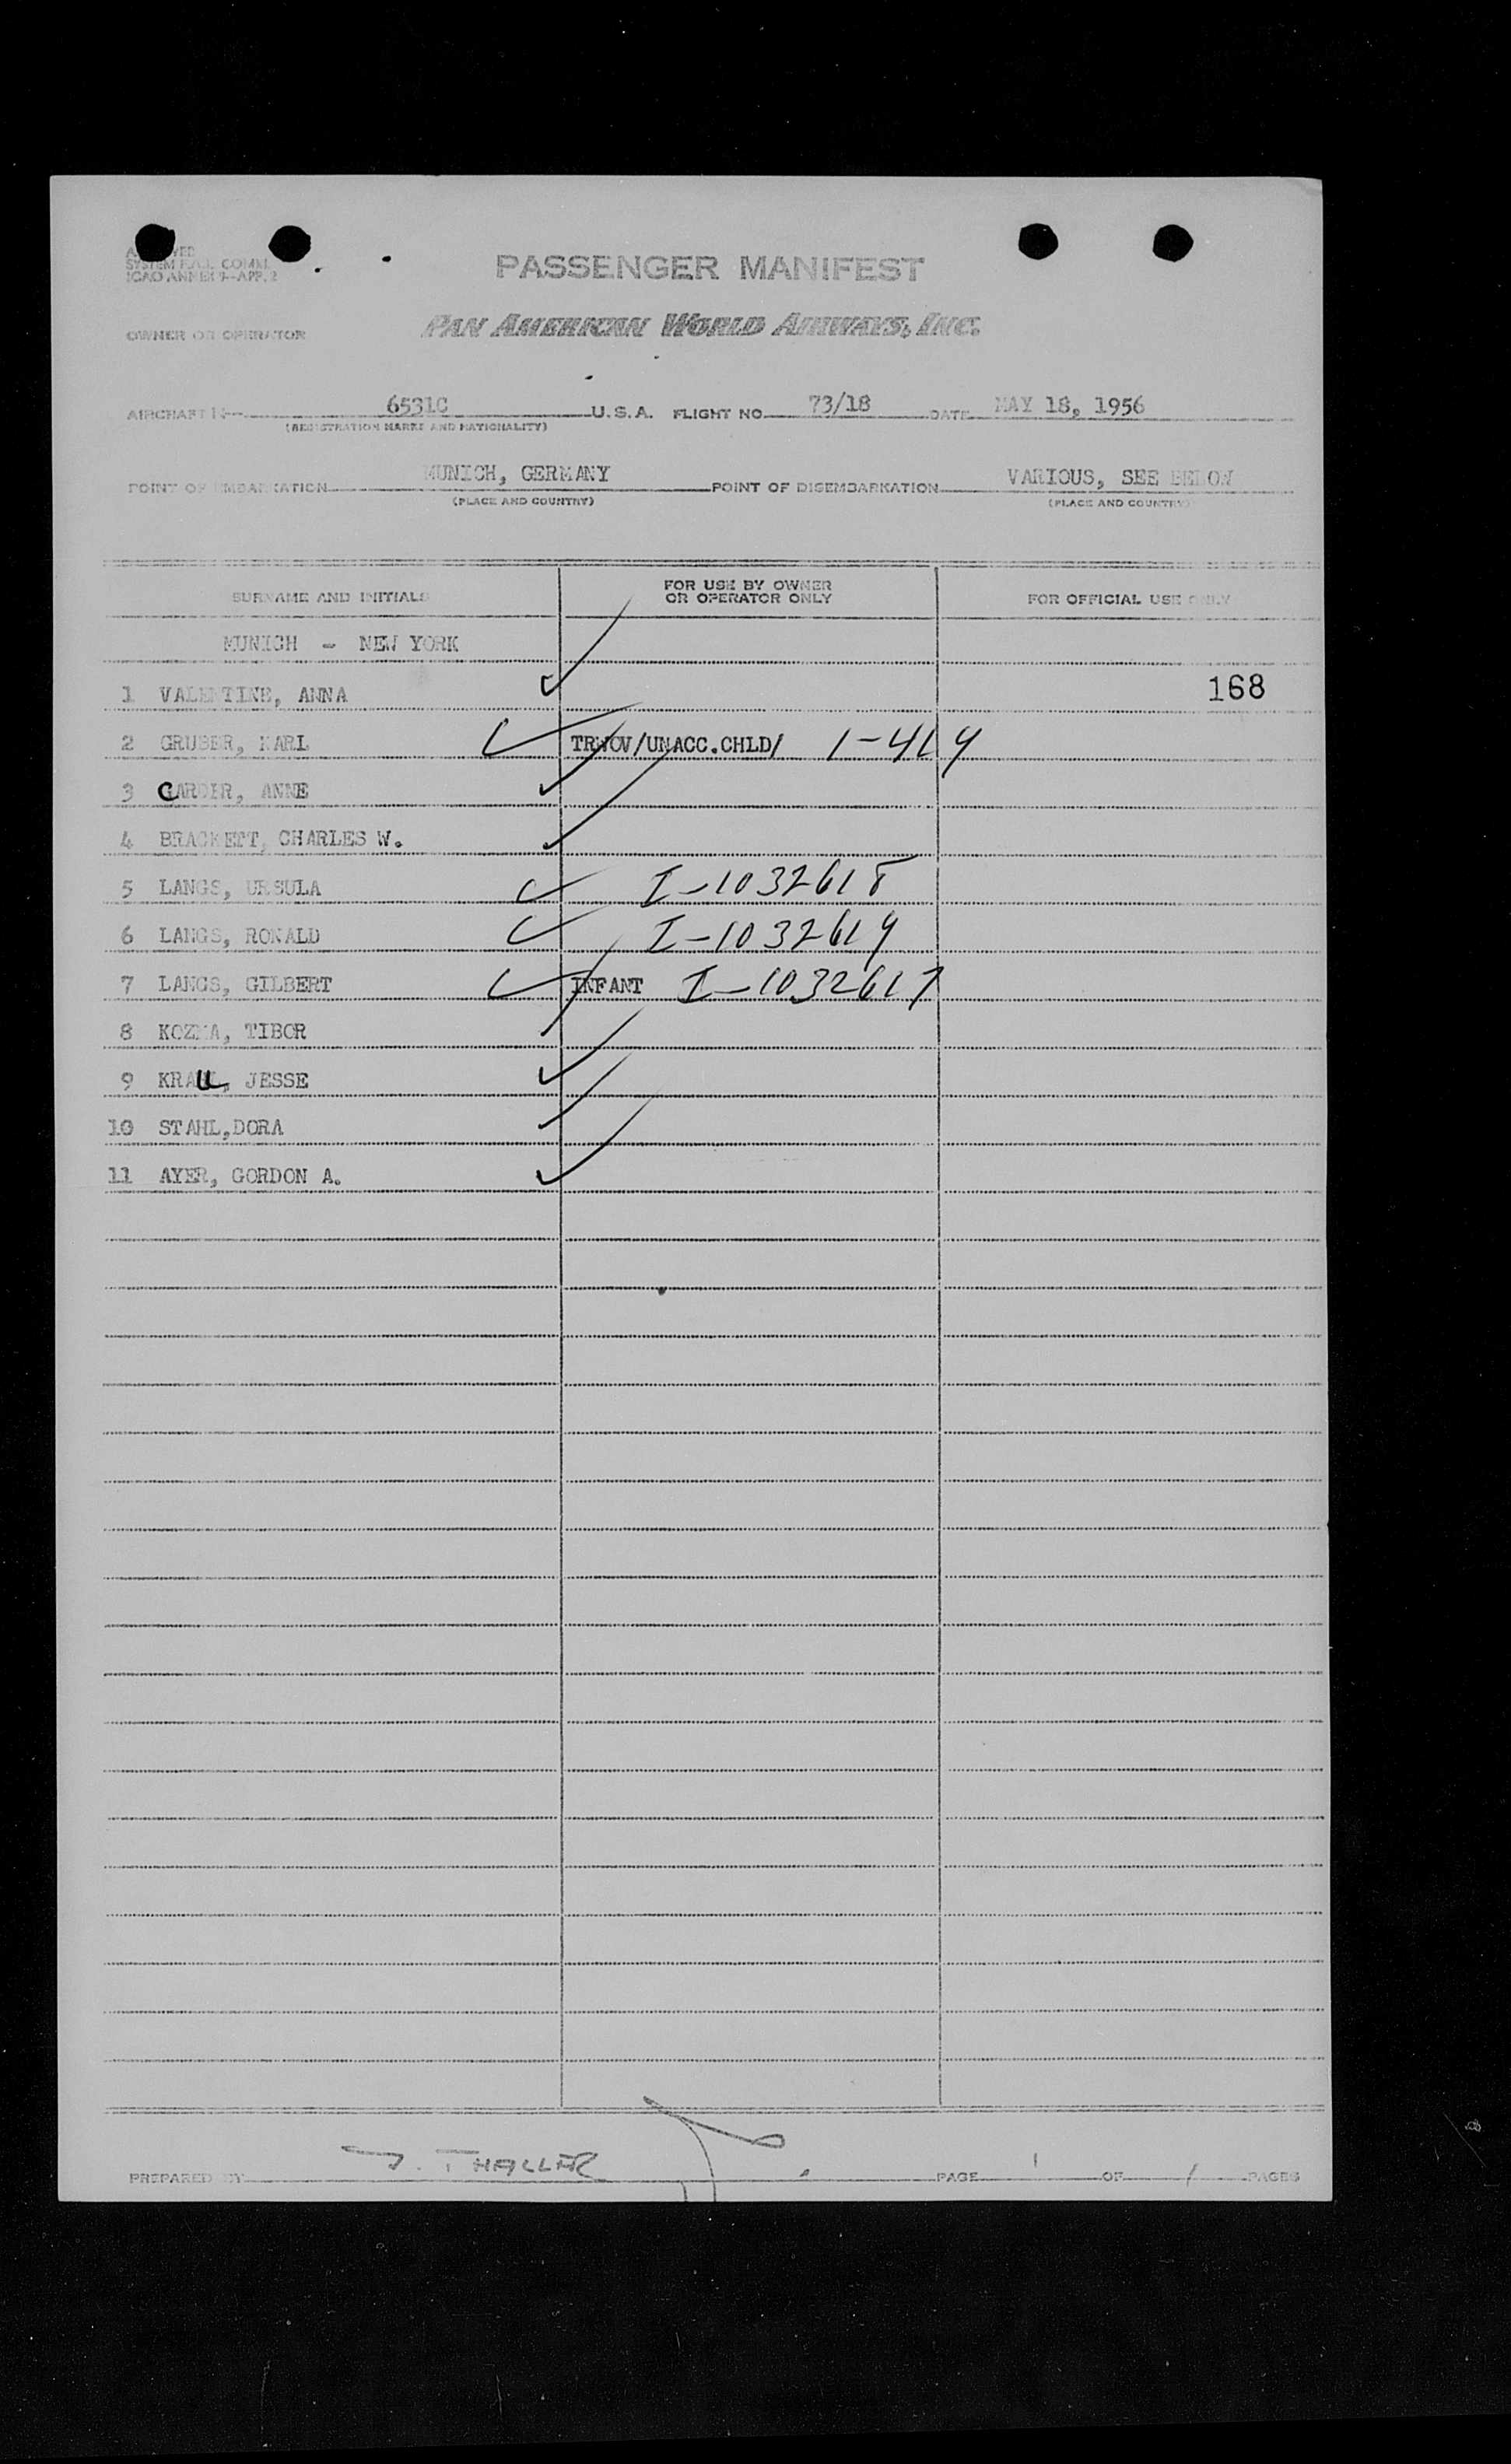 SYSTEM F.A.L. COMM.
ICAO ANNEX 9—APP. 2
PASSENGER MANIFEST
OWNER OR OPERATOR PAN AMERICAN WORLD AIRWAYS, INC.
AIRCRAFT N— 6531C U.S.A. FLIGHT NO. 73/18 DATE MAY 18, 1956
(REGISTRATION MARKS AND NATIONALITY)
POINT OF EMBARKATION MUNICH, GERMANY POINT OF DISEMBARKATION VARIOUS, SEE BELOW
(PLACE AND COUNTRY) (PLACE AND COUNTRY)
SURNAME AND INITIALS FOR USE BY OWNER OR OPERATOR ONLY FOR OFFICIAL USE ONLY
MUNICH - NEW YORK
1 VALENTINE, ANNA 168
2 GRUBER, KARL TRWOV/UNACC.CHLD/ 1-414
3 ANNE
4 BRACKETT, CHARLES W.
5 LANGS, URSULA I-1032618
6 LANGS, RONALD I-1032619
7 LANGS, GILBERT INFANT I-1032617
8 KOZMA, TIBOR
9 JESSE
10 STAHL,DORA
11 AYER, GORDON A.
PREPARED BY J. THALLER PAGE 1 OF 1 PAGES